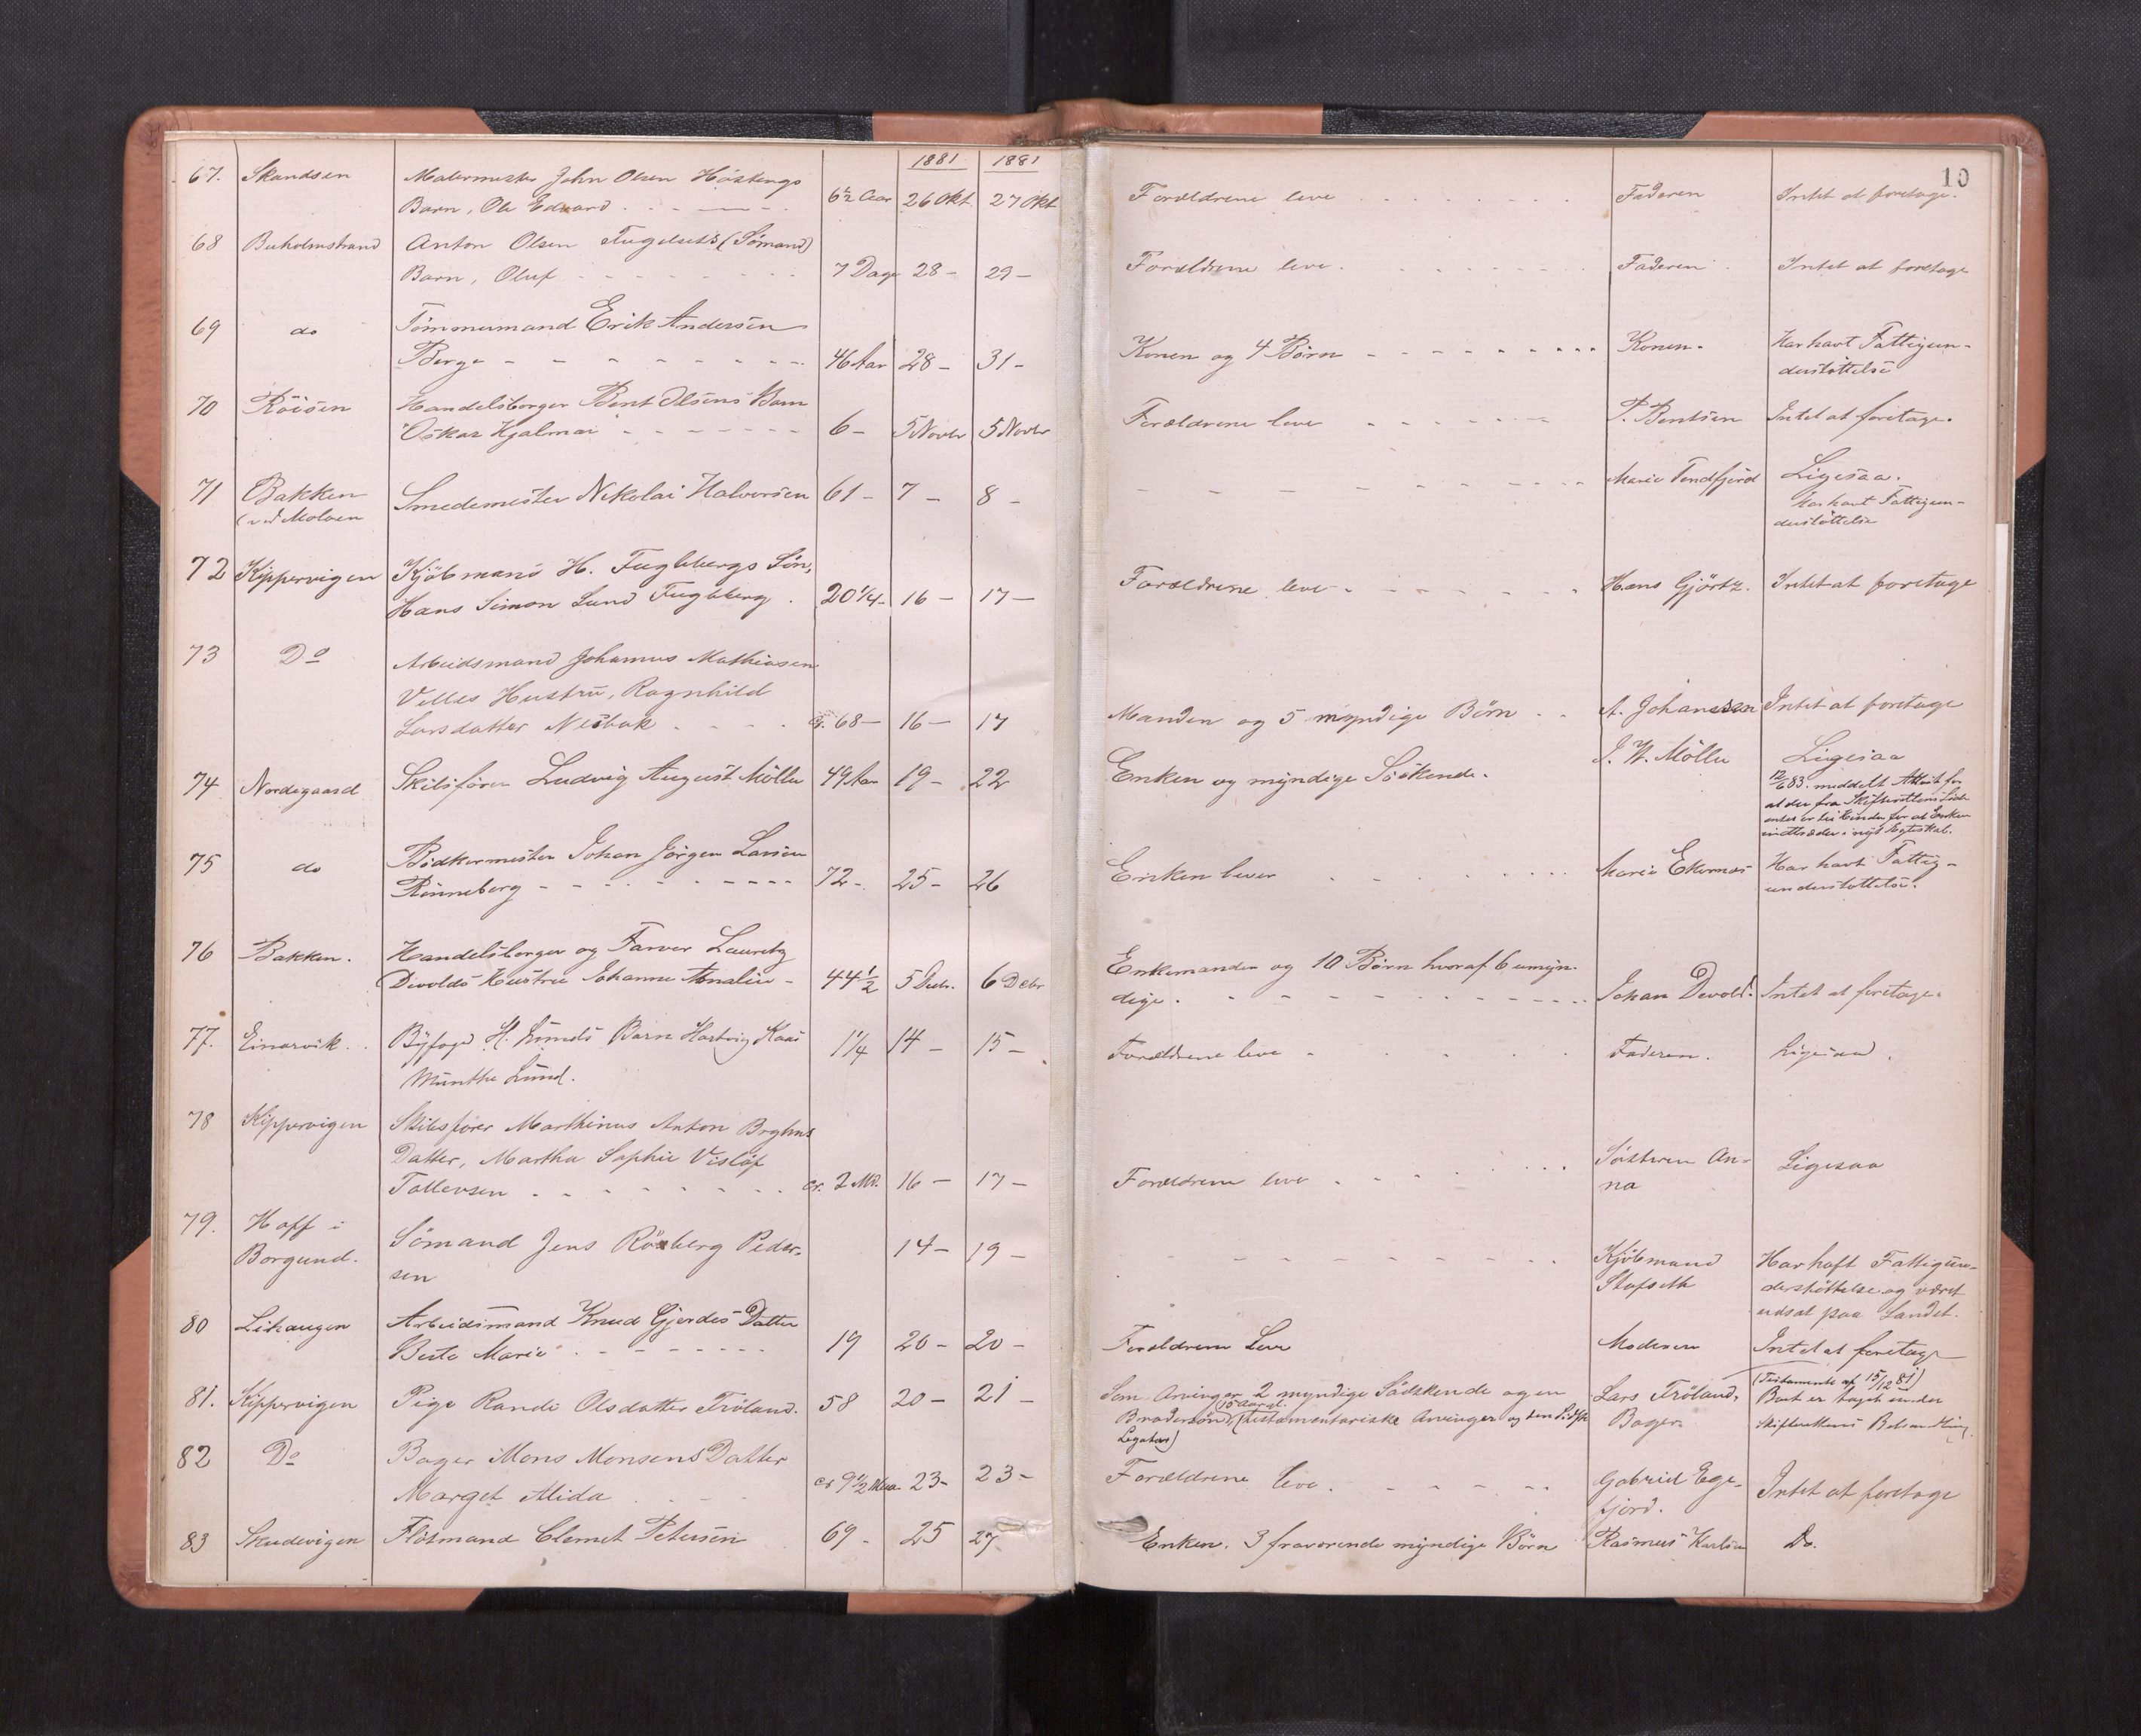 10
1881 1881
67. Skandsen Malermester John Olsen Höstengs
Barn, Ole Edvard 6½ Aar 26 Okt. 27 Okt Forældrene leve Faderen Intet at foretage.
68 Buholmstrand Anton Olsen Fugelsets (Sömand)
Barn, Oluf 7 Dage 28 - 29 - Forældrene leve. Faderen. Intet at foretage
69 do Tömmermand Erik Andersen
Berge 46 Aar 28 - 31 - Konen og 4 Börn Konen. Har havt Fattigun-
derstöttelse
70 Röisen Handelsborger Bent Olsens Barn
Oskar Hjalmar 6 - 5 Novbr 5 Novbr Forældrene leve P. Bentsen Intet at foretage.
71 Bakken Smedemester Nikolai Halvorsen 61 - 7 - 8 - Marie Tendfjord Ligesaa.
(ved Molven Har havt Fattigun-
derstöttelse
72 Kippervigen Kjöbmand H. Fuglebergs Sön,
Hans Simon Lund Fugleberg. 20¼ - 16 - 17 - Forældrene leve Hans Gjörtz. Intet at foretage
73 Do Arbeidsmand Johannes Mathiasen
Velles Hustru, Ragnhild
Larsdatter Nesbak cr. 68 - 16 - 17 Manden og 5 myndige Börn A. Johansen Intet at foretage
74 Nordregaard Skibsförer Ludvig August Möller 49 Aar 19 - 22 Enken og myndige Söskende. J. W. Möller Ligesaa
12/6 83. meddelt Attest for
at der fra Skifterettens Side
intet er til Hinder for at Enken
indtræder i nyt Egteskab.
75 do Bödkermester Johan Jörgen Larsen
Rönneberg 72 - 25 - 26 Enken lever Marie Ekornæs Har havt Fattig-
understöttelse.
76 Bakken. Handelsborger og Farver Lauritz
Devolds Hustru Johanne Amalie - 44½ 5 Decbr. 6 Decbr Enkemanden og 10 Börn hvoraf 6 umyn-
dige. Johan Devold. Intet at foretage.
77. Einarvik. Byfoged H. Lunds Barn Hartvig Kaas
Munthe Lund. 1¼ 14 - 15 - Forældrene leve Faderen. Ligesaa.
78 Kippervigen Skibsförer Marthinus Anton Bryhns
Datter, Martha Sophie Vislöf
Tollevsen cr. 2 Md. 16 - 17 - Forældrene leve Sösteren An-
na Ligesaa
79. Hoff i
Borgund. Sömand Jens Röxberg Peder-
sen 14 - 19 - Kjöbmand
Stafseth Har haft Fattigun-
derstöttelse og været
udsat paa Landet.
80 Lihaugen Arbeidsmand Knud Gjerdes Datter
Berte Marie 19 20 - 20 - Forældrene Leve Moderen Intet at foretage
81. Kippervigen Pige Randi Olsdatter Fröland. 58 20 - 21 - Som Arvinger 2 myndige Södskende og en
Brodersön (15 Aar gl.) (testamentariske Arvinger og den
Legatar) Lars Fröland,
Bager. (Testamente af 15/12 81)
Boet er taget under
Skifterettens Behandling.
82 Do Bager Mons Monsens Datter
Marget Alida cr 9½ Maa. 23 - 23 - Forældrene leve. Gabriel Ege-
fjord. Intet at foretage
83 Skudevigen Flötmand Clemet Petersen 69 - 25 27 Enken. 3 fraværende myndige Börn Rasmus Karlsen Do.